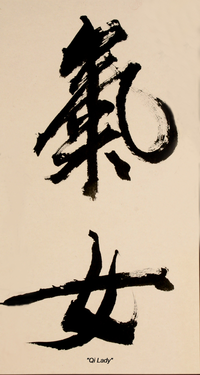 氣
女
"Qi Lady"